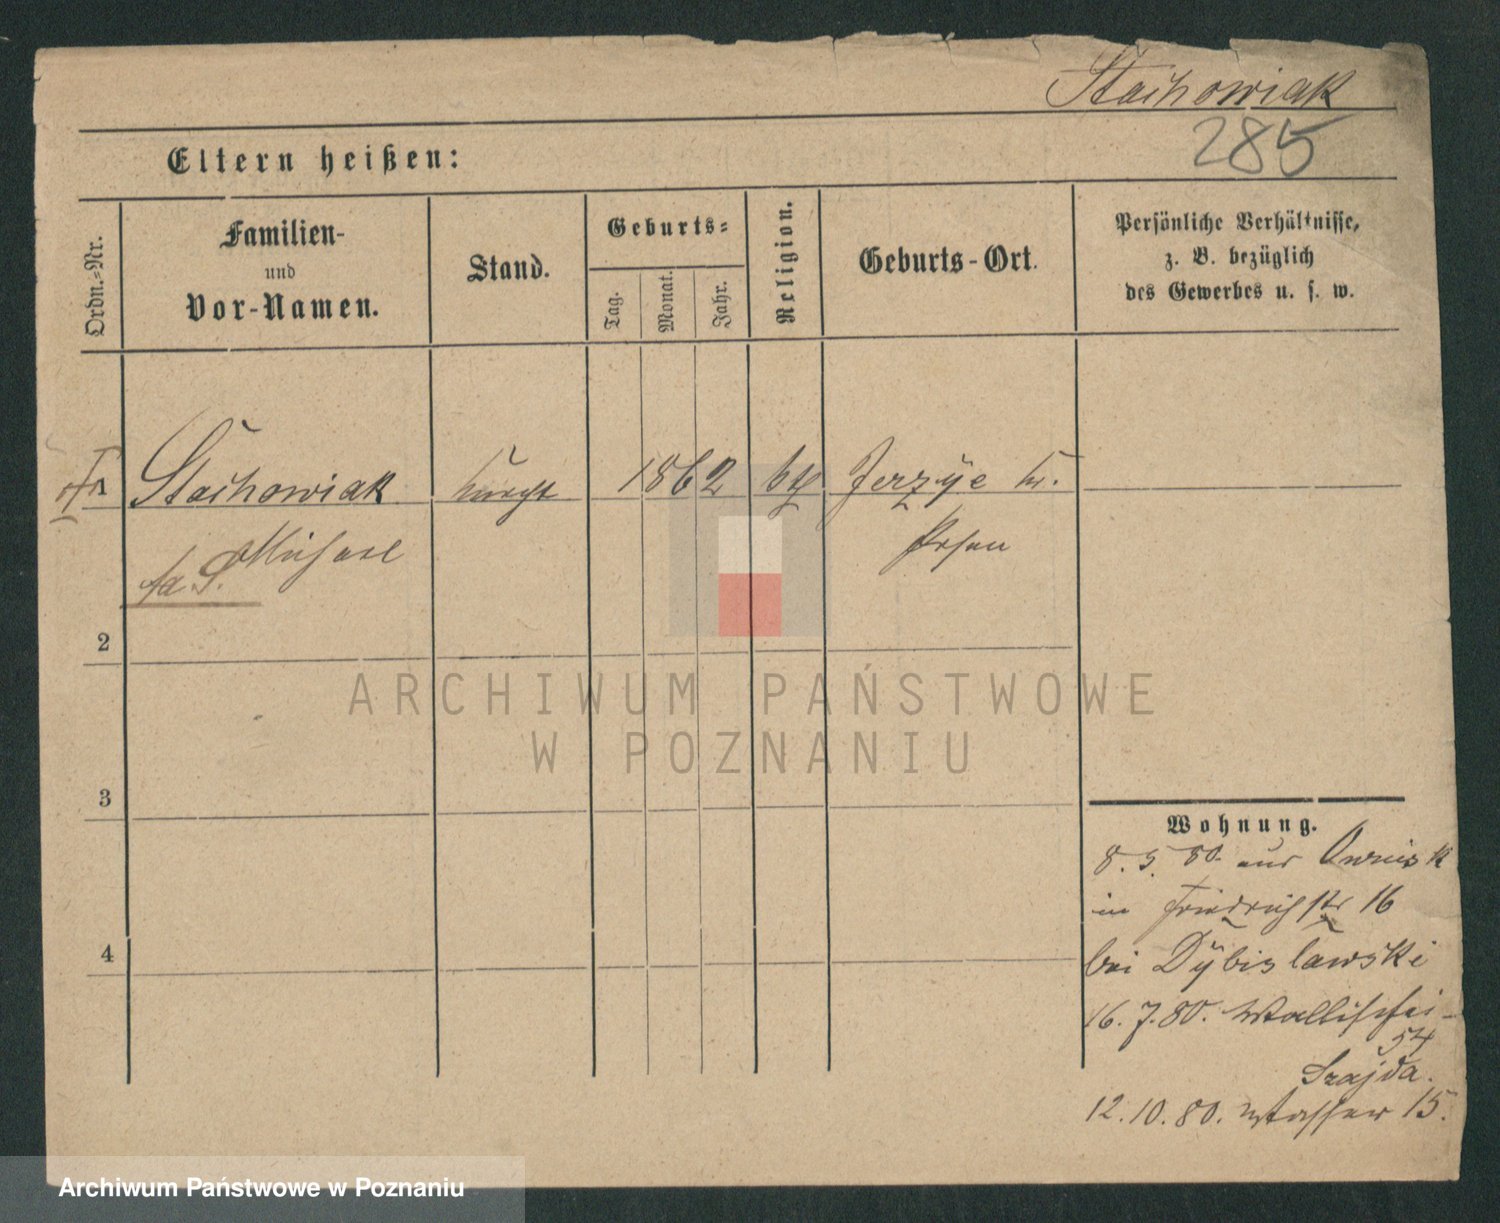 Stachowiak
285
Eltern heißen:
Ordn.-Nr.
Familien-
und
Vor-Namen.
Stand.
Geburts-
Tag.
Monat.
Jahr.
Religion.
Geburts-Ort.
Persönliche Verhältnisse,
z. B. bezüglich
des Gewerbes u. s. w.
1
Stachowiak
Knecht
1862
kth
Jerzyce Kr.
Posen
Michael
2
3
4
Wohnung.
8. 5. 80. aus Owinsk
in Friedrichstr 16
bei Dybislawski
16. 7. 80. Wallischei-
54
Szajda.
12. 10. 80. Wasser 15.
ARCHIWUM PAŃSTWOWE
W POZNANIU
Archiwum Państwowe w Poznaniu